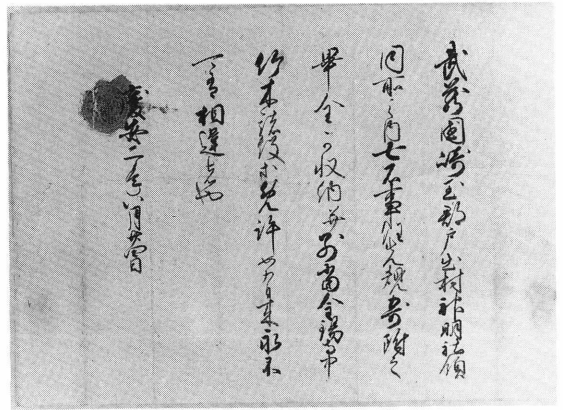 武蔵國崎玉郡戸出村神明社領
同所之内七石事任先規寄附之
畢全可収納并別當金錫寺中
竹木諸役等免許如有来永不
可有相違者也
慶安二年八月廿四日